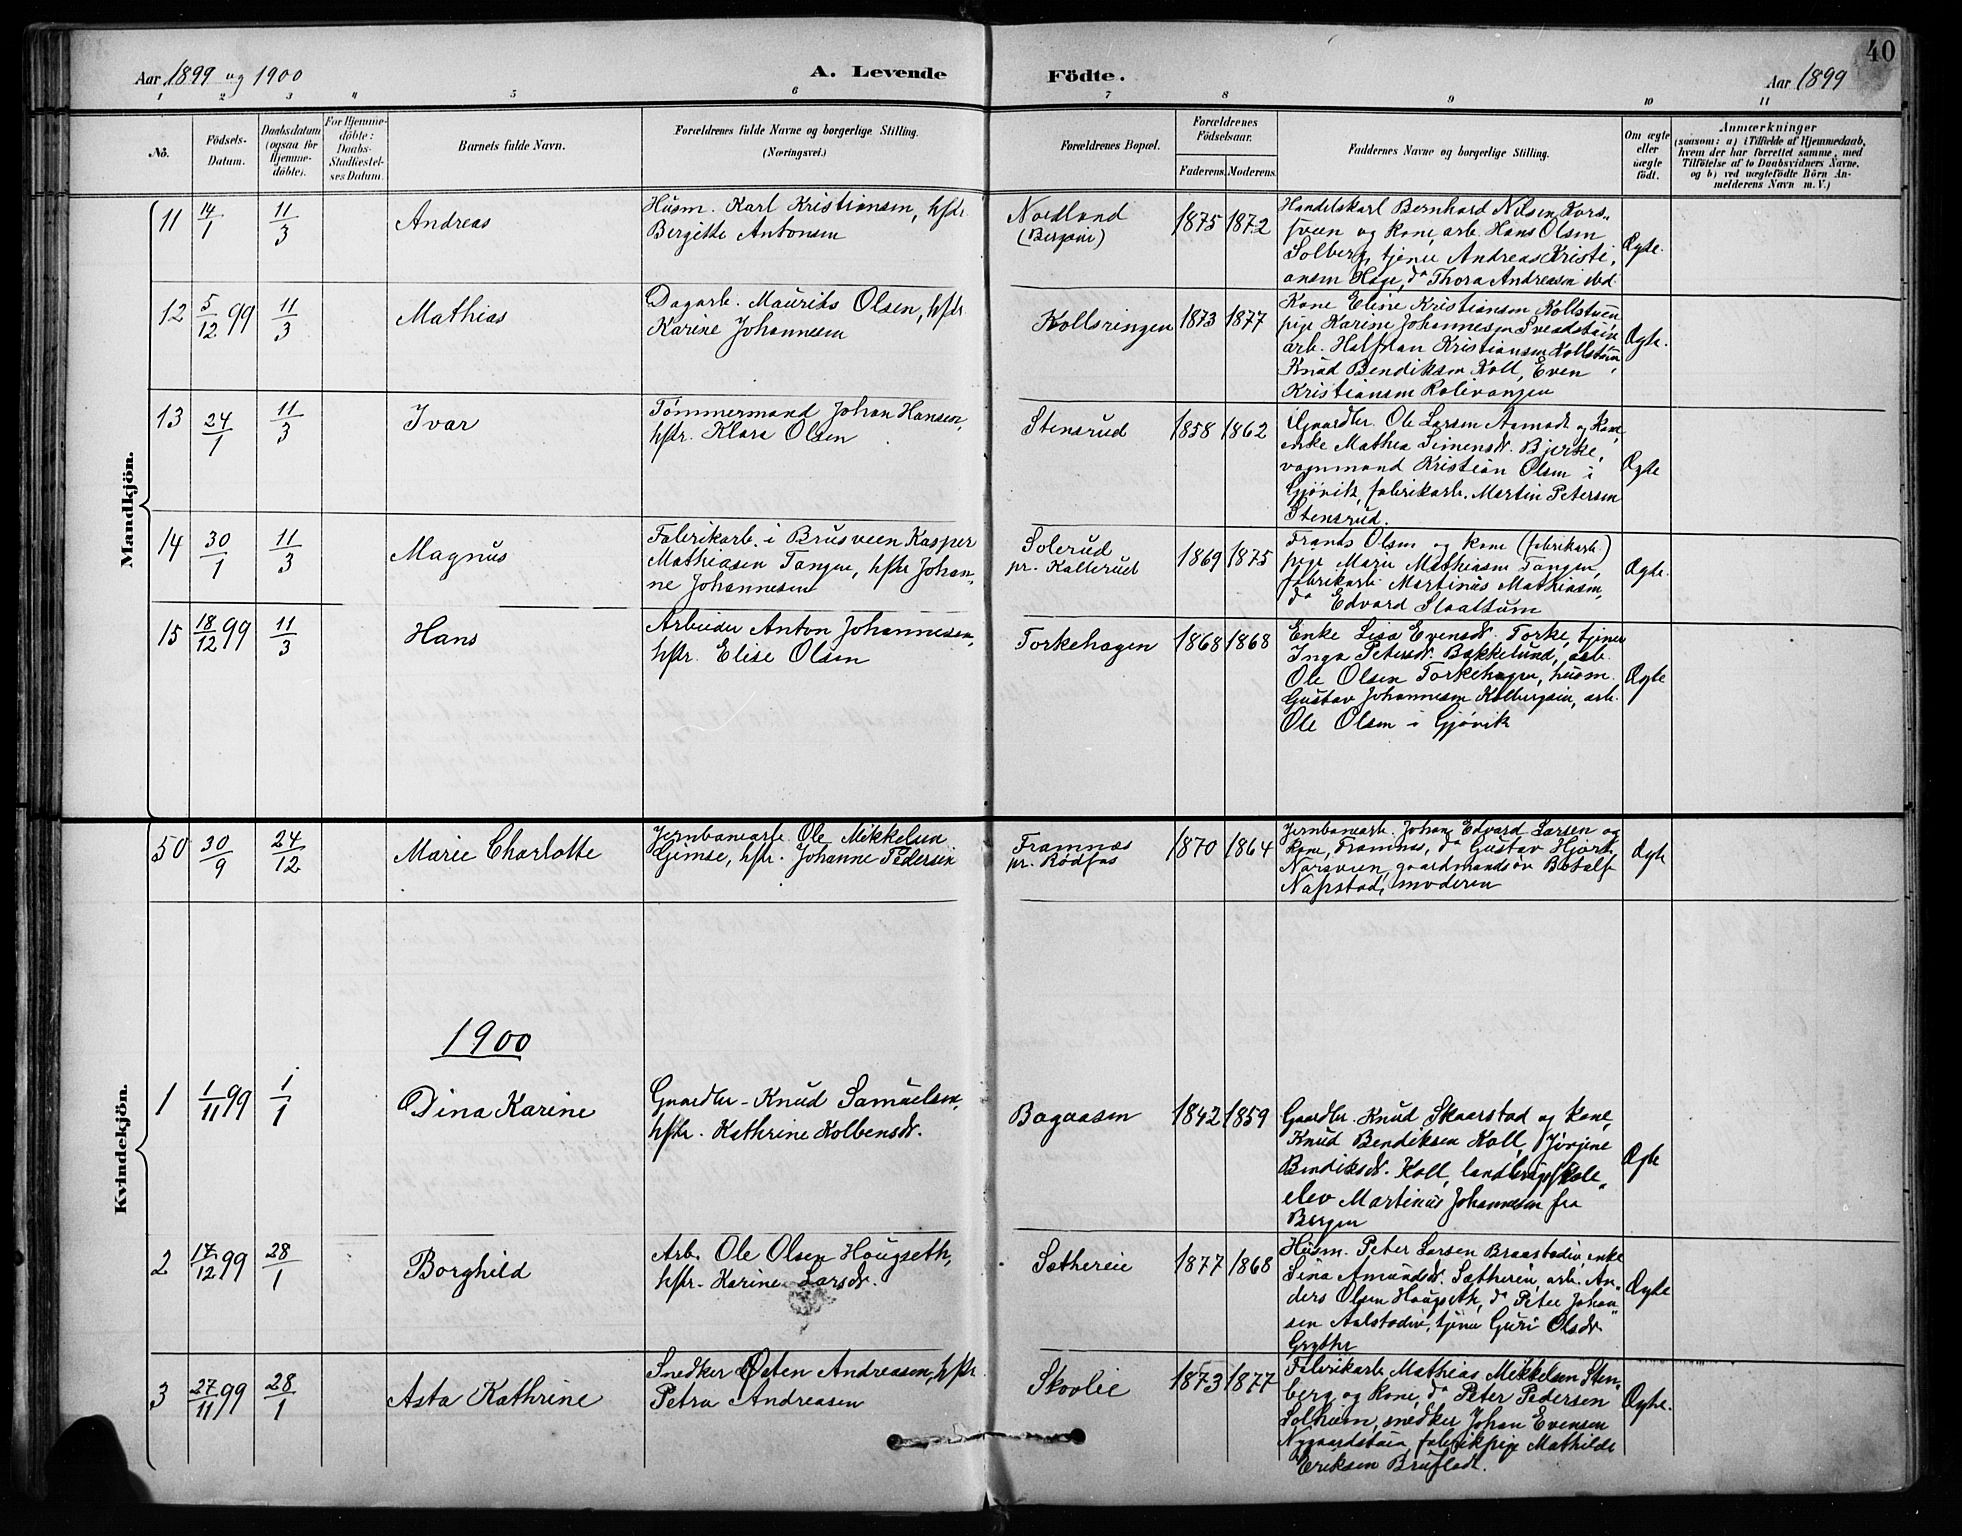 40
Aar 1899 og 1900
A. Levende
Födte.
Aar 1899
1 2 3 4 5 6 7 8 9 10 11
No.
Födsels-
Datum.
Daabsdatum
(ogsaa for
Hjemme-
döbte).
For Hjemme-
döbte:
Daabs-
Stadfæstel-
ses Datum.
Barnets fulde Navn.
Forældrenes fulde Navne og borgerlige Stilling.
(Næringsvei.)
Forældrenes Bopæl.
Forældrenes
Födselsaar.
Faderens. Moderens.
Faddernes Navne og borgerlige Stilling.
Om ægte
eller
uægte
födt.
Anmærkninger
(saasom: a) i Tilfælde af Hjemmedaab,
hvem der har forrettet samme, med
Tilföielse af to Daabsvidners Navne.
og b) ved uægtefödte Börn An-
melderens Navn m. V.)
Mandkjön.
11 14/1 11/3 Andreas
Husm. Karl Kristiansen, hstr.
Bergitte Antonsen
Nordland
(Bergsvie)
1875 1872
Handelskarl Bernhard Nilsen Kors-
sveen og kone, arb. Hans Olsen
Solberg, tjener Andreas Kristi-
ansen Hage, do Thora Andreasen ibd.
Ægte.
12 5/12 99 11/3 Mathias
Dagarb. Maurits Olsen, hstr.
Karine Johannesen
Kollsringen
1873 1877
Kone Eline Kristiansen Kollstuen
pige Karine Johannesen
arb. Halfdan Kristiansen Kollstuen,
Knud Bendiksen Koll, Even
Kristiansen
Ægte.
13 24/1 11/3 Ivar
Tømmermand Johan Hansen,
hstr. Klara Olsen
Stensrud
1858 1862
Gaardbr. Ole Larsen Aamodt og kone,
enke Mathea Simensdr. Bjerke,
vognmand Kristian Olsen i
Gjøvik, fabrikarb. Martin Petersen
Stensrud.
Ægte
14 30/1 11/3 Magnus
Fabrikarb. i Brusveen Kasper
Mathiasen Tangen, hstr. Johan-
ne Johannesen
Solerud
pr. Kallerud
1869 1875
Frants Olsen og kone (fabrikarb.)
pige Marie Mathiasen Tangen,
fabrikarb. Martinus Mathiasen,
do Edvard Slaatsum
Ægte.
15 18/12 99 11/3 Hans
Arbeider Anton Johannesen,
hstr. Elise Olsen
Torkehagen
1868 1868
Enke Lisa Evensdr. Torke, tjener
Inga Petersdr. Bakkelund, arb.
Ole Olsen Torkehagen, husm.
Gustav Johannesen arb.
Ole Olsen i Gjøvik
Ægte
Kvindekjön.
50 30/9 24/12 Marie Charlotte
Jernbanearb. Ole Mikkelsen
Gimse, hstr. Johanne Pedersen
Framnæs
pr. Rødfos
1870 1864
Jernbanearb. Johan Edvard Larsen og
kone, Framnæs, do Gustav Hjort
Narsveen, gaardmandsøn Botolf
moderen
Ægte
1900
1 1/11 99 1/1 Dina Karine
Gaardbr. Knud Samuelsen,
hstr. Kathrine Kolbensdr.
Bagaasen
1842 1859
Gaardbr. Knud Skaarstad og kone,
Knud Bendiksen Koll, Jørgine
Bendiksdr. Koll, landbrugsskole-
elev Martinus Johannesen fra
Bergen
Ægte
2 17/12 99 28/1 Borghild
Arb. Ole Olsen Hougseth,
hstr. Karine Larsdr.
Sæthereie
1877 1868
Husm. Peter Larsen Braastadeie, enke
Lina Amundsdr. Sætherei, arb. An-
ders Olsen Hougseth, do Peter Johan-
sen Aalstadeie, tjener Guri Olsdr.
Grythe
Ægte
3 27/11 99 28/1 Asta Kathrine
Snedker Østen Andreasen, hstr.
Petra Andreasen
Skovlie
1873 1877
Fabrikarb. Mathias Mikkelsen Sten-
berg og kone, do Peter Pedersen
Solheim, snedker Johan Evensen
Nygaardstuen, fabrikpige Mathilde
Eriksen Brufladt.
Ægte.